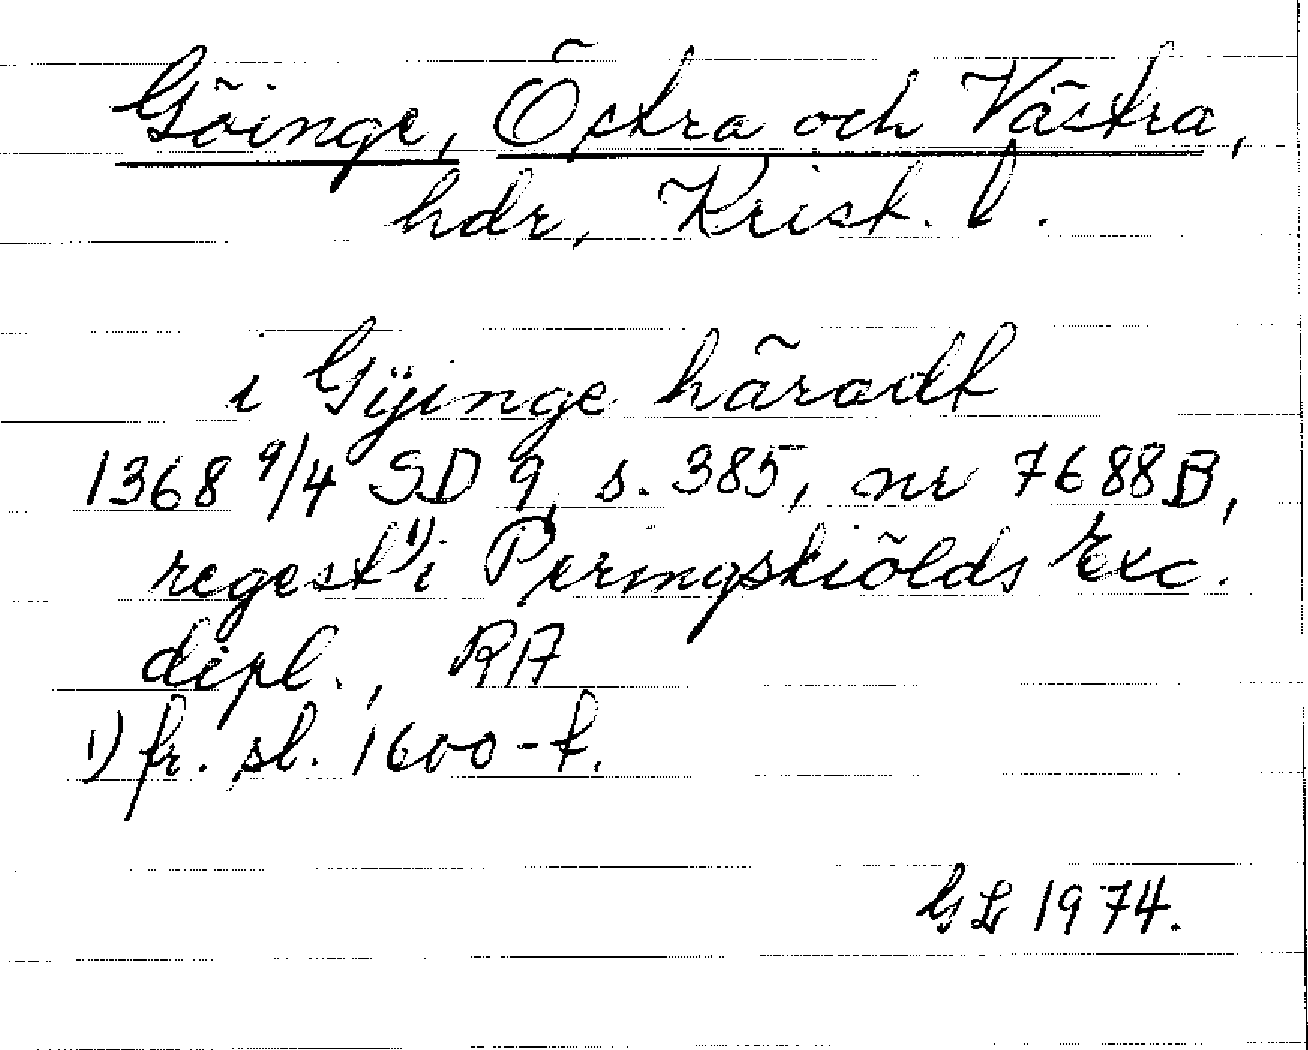 Göinge, Östra och Västra,
hdr, Krist. l.
i Gÿinge häradt
1368 9/4 SD 9, s. 385, nr 7688B,
regest 1) i Peringskiölds Exc.
dipl., RA
1) fr. sl. 1600-t.
GL 1974.